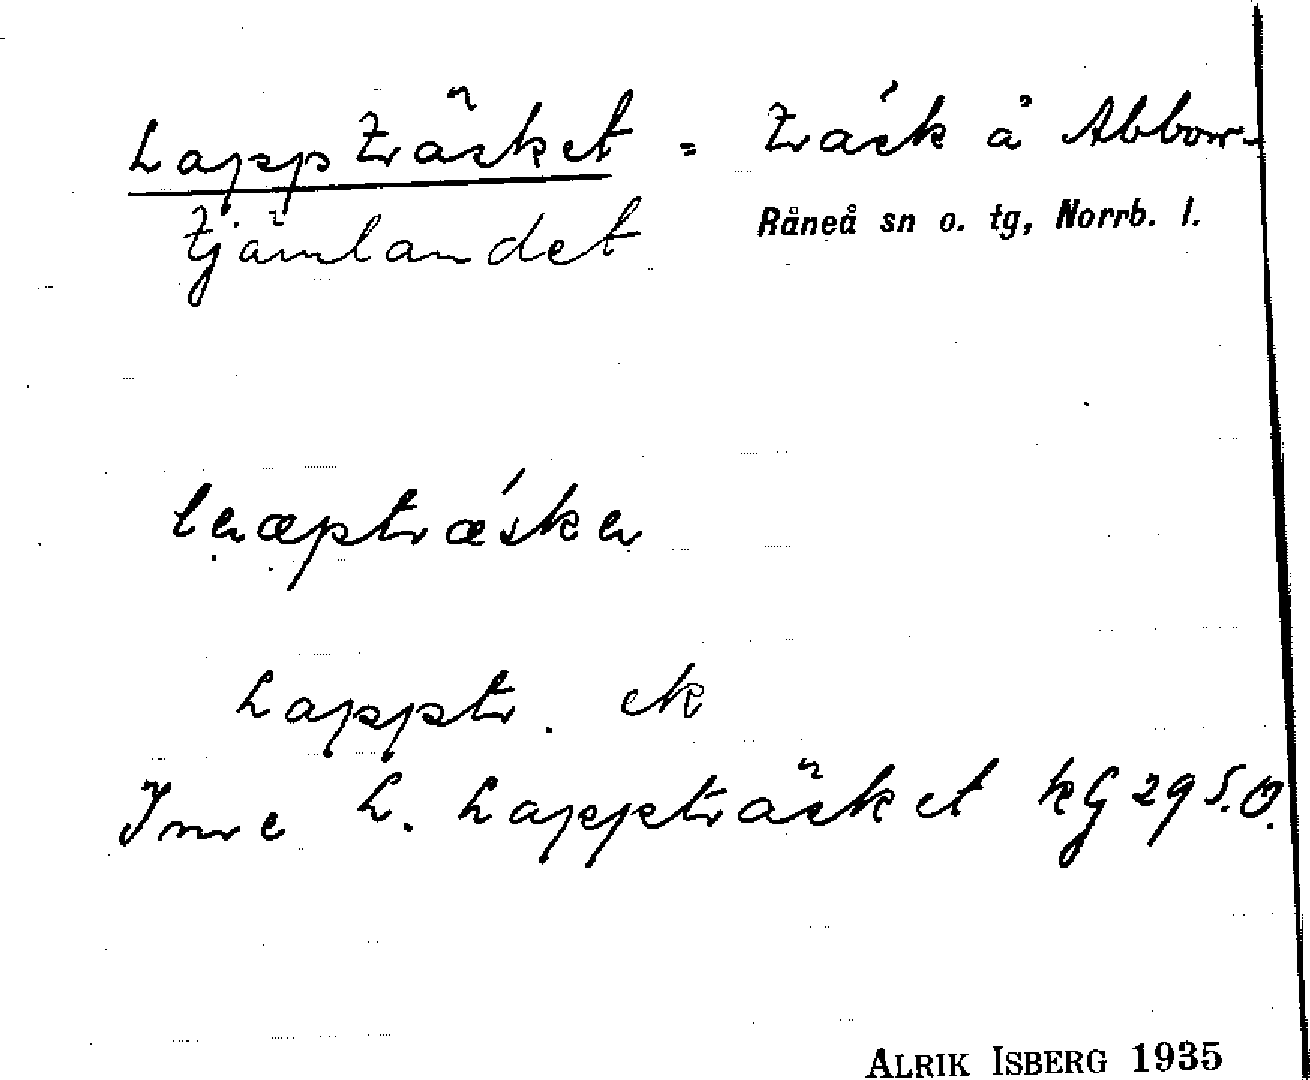 Lappträsket = träsk å Abborr-
tjärnlandet Råneå sn o. tg, Norrb. l.
Lapptr. ek
Inre L. Lappträsket kG 29 S.O.
ALRIK ISBERG 1935